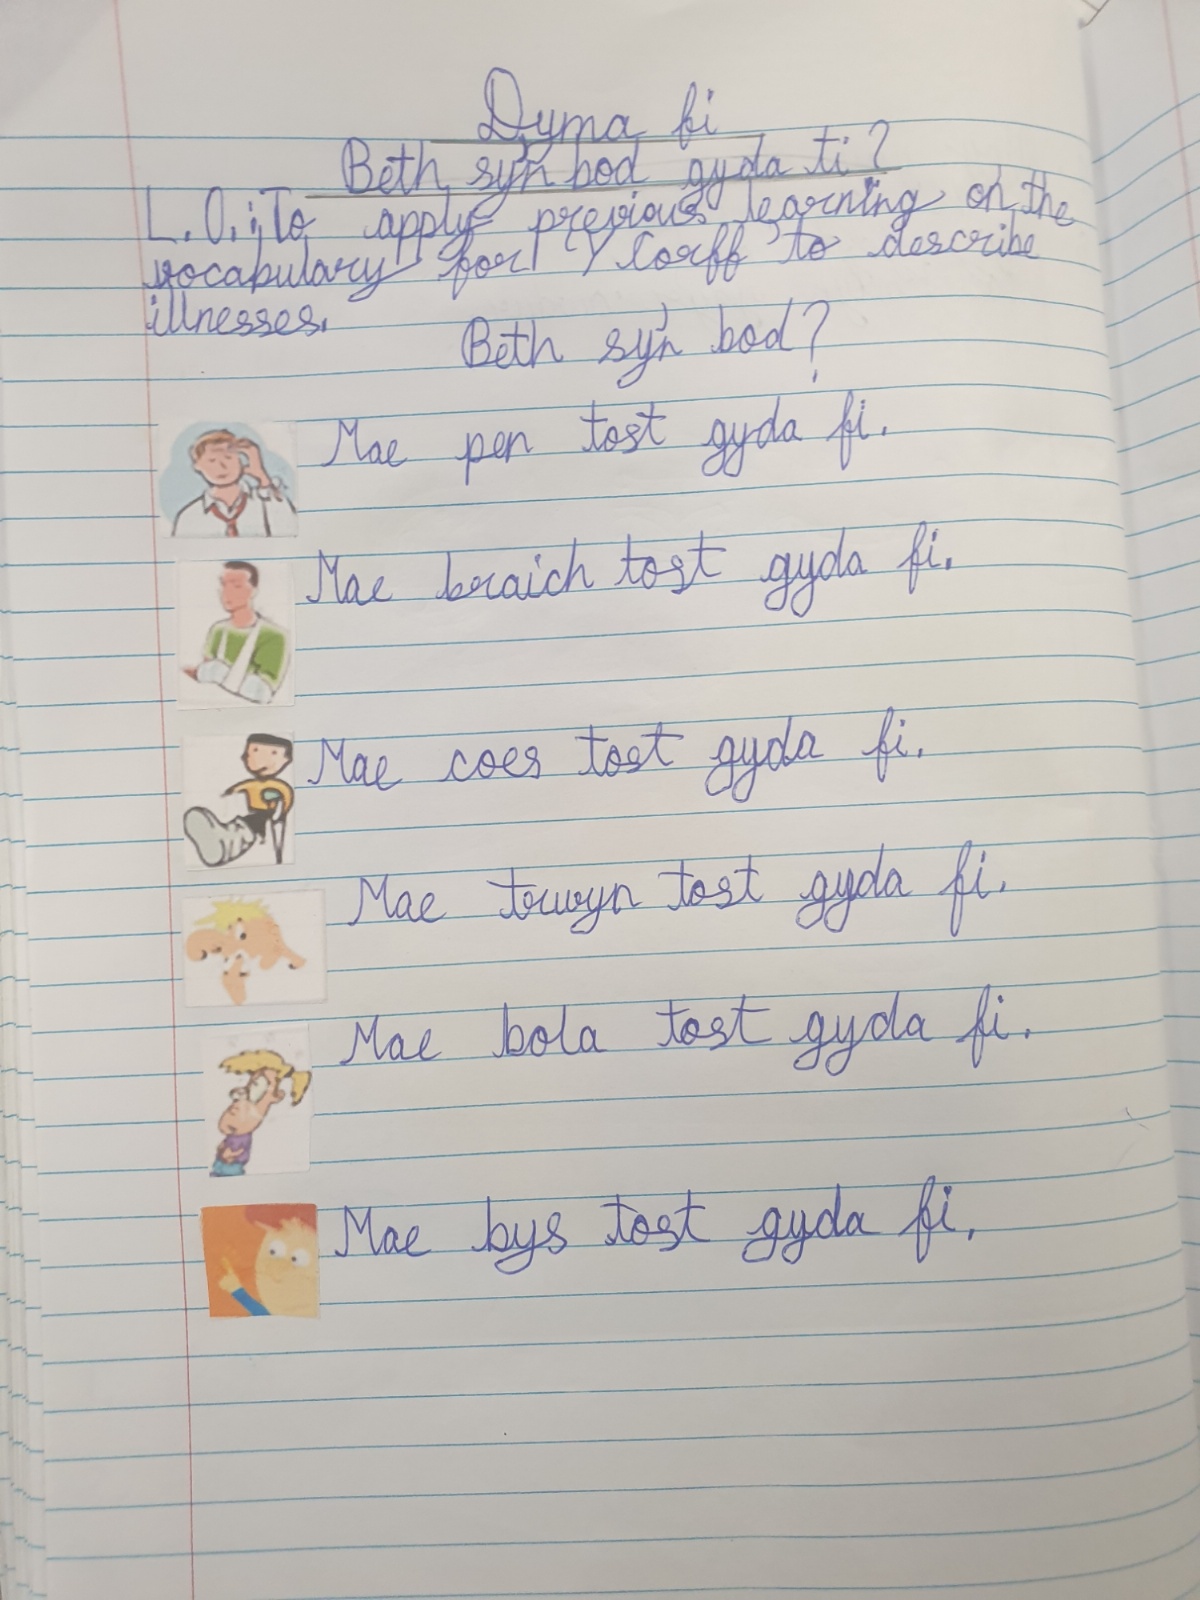 Dyma fi
Beth sy'n bod gyda ti?
L.O.: To apply previous learning on the
vocabulary for 'Y Corff' to describe
illnesses.
Beth sy'n bod?
Mae pen tost gyda fi.
Mae braich tost gyda fi.
Mae coes tost gyda fi.
Mae trwyn tost gyda fi.
Mae bola tost gyda fi.
Mae bys tost gyda fi.